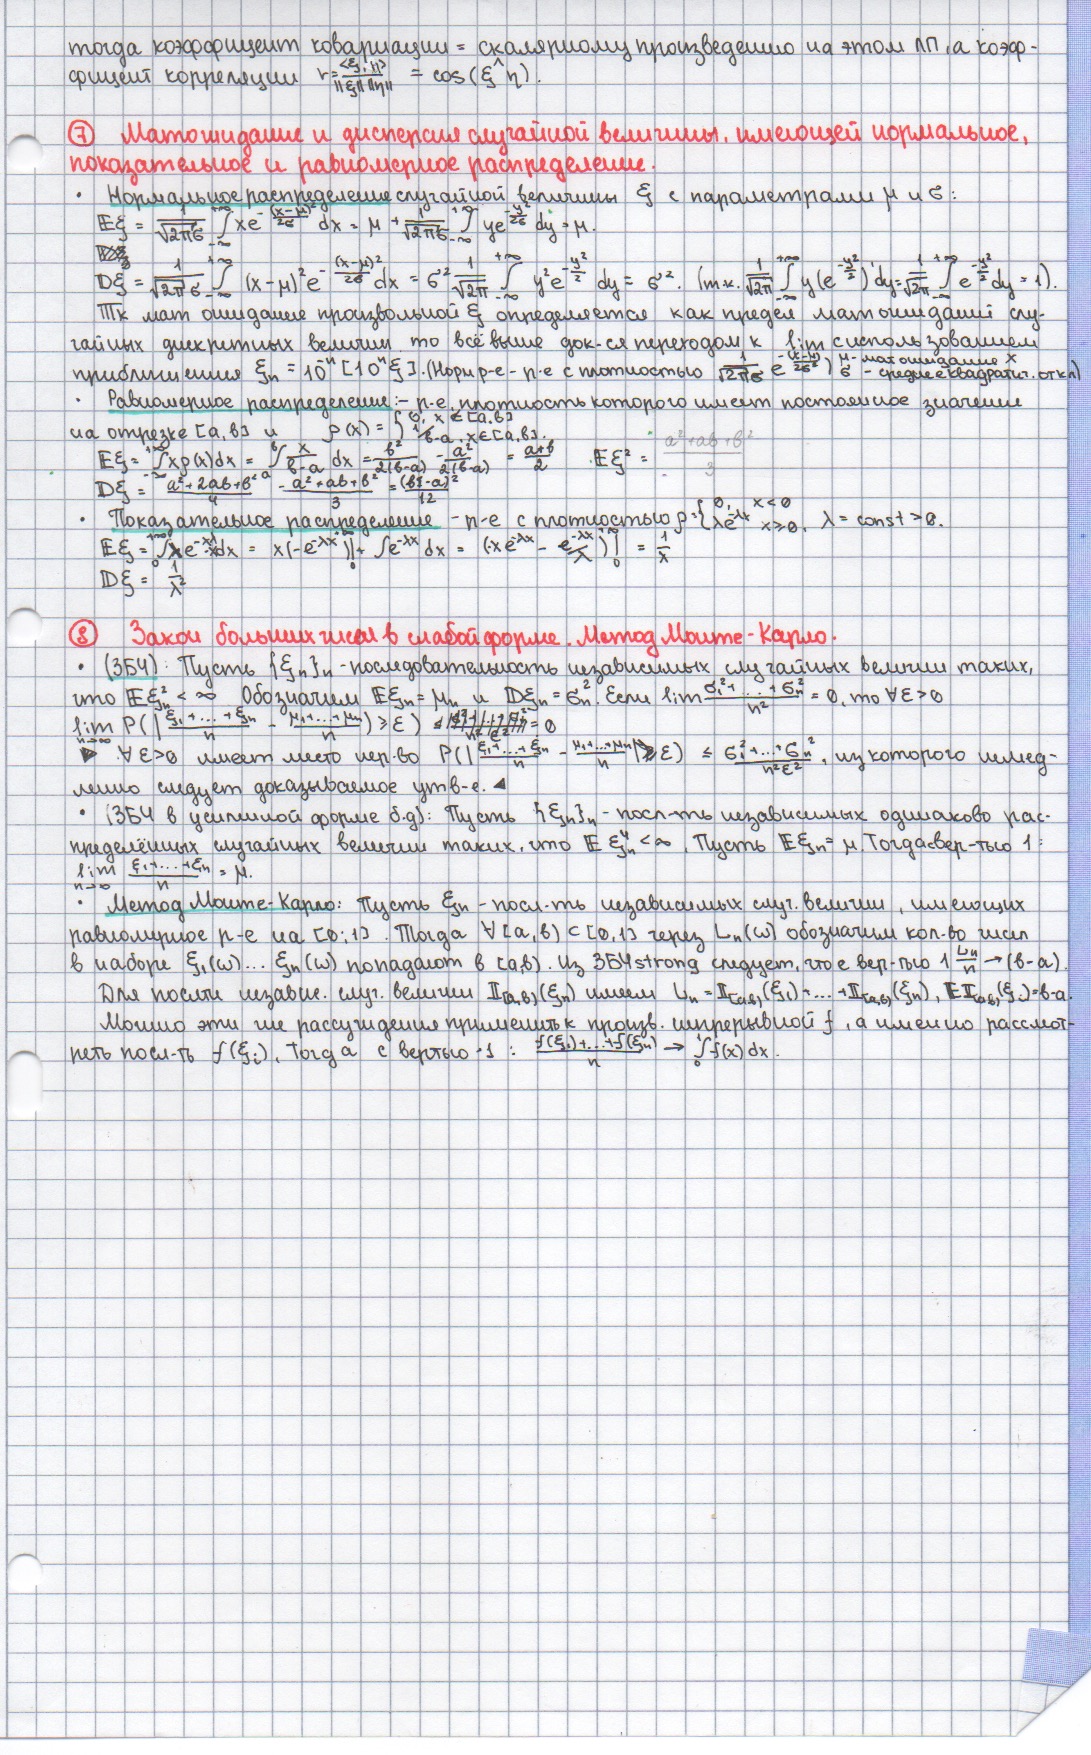 тогда коэффициент ковариации = скалярному произведению на этом ЛП, а коэф-
фициент корреляции r = <ξ, η> / ||ξ|| ||η|| = cos(ξ^η).
⑦ Матожидание и дисперсия случайной величины, имеющей нормальное,
показательное и равномерное распределение.
• Нормальное распределение случайной величины ξ с параметрами μ и σ:
𝔼ξ = 1/√2πσ ∫_{-∞}^{+∞} xe^{-(x-μ)²/2σ} dx = μ + 1/√2πσ ∫_{-∞}^{+∞} ye^{-y²/2σ} dy = μ.
𝔻ξ = 1/√2πσ ∫_{-∞}^{+∞} (x-μ)² e^{-(x-μ)²/2σ} dx = σ² 1/√2π ∫_{-∞}^{+∞} y² e^{-y²/2} dy = σ². (т.к. 1/√2π ∫_{-∞}^{+∞} y(e^{-y²/2})' dy = 1/√2π ∫_{-∞}^{+∞} e^{-y²/2} dy = 1).
Тк мат ожидание произвольной ξ определяется как предел матожиданий слу-
чайных дискретных величин то всё выше док-ся переходом к lim с использованием
приближения ξn = 10^{-n} [10^n ξ]. (Норм р-е - р-е с плотностью 1/√2πσ e^{-(x-μ)²/2σ²}) μ - мат ожидание x σ - среднеквадратич. откл)
• Равномерное распределение :- р-е, плотность которого имеет постоянное значение
на отрезке [a,b] и ρ(x) = { 0, x ∉ [a,b] 1/b-a, x ∈ [a,b].
𝔼ξ = ∫_{-∞}^{+∞} xρ(x)dx = ∫_a^b x/b-a dx = b²/2(b-a) - a²/2(b-a) = a+b/2 𝔼ξ² = a²+ab+b²/3
𝔻ξ = a²+2ab+b²/4 - a²+ab+b²/3 = (b-a)²/12
• Показательное распределение - р-е с плотностью ρ = { 0, x<0 λe^{-λx} x≥0, λ = const > 0.
𝔼ξ = ∫_0^{+∞} λe^{-λx}·x dx = x(-e^{-λx})|_0^∞ + ∫e^{-λx} dx = (-xe^{-λx} - e^{-λx}/λ)|_0^∞ = 1/λ
𝔻ξ = 1/λ²
⑧ Закон больших чисел в слабой форме. Метод Монте-Карло.
• (ЗБЧ): Пусть {ξn}n - последовательность независимых случайных величин таких,
что 𝔼ξn² < ∞ Обозначим 𝔼ξn = μn и 𝔻ξn = σn². Если lim σ1²+...+σn²/n² = 0, то ∀ε>0
lim_{n→∞} P(|ξ1+...+ξn/n - μ1+...+μn/n| ≥ ε) = 0
▶ ∀ε>0 имеет место нер-во P(|ξ1+...+ξn/n - μ1+...+μn/n| ≥ ε) ≤ σ1²+...+σn²/n²ε², из которого немед-
ленно следует доказываемое утв-е. ◄
• (ЗБЧ в усиленной форме б.д): Пусть {ξn}n - посл-ть независимых одинаково рас-
пределённых случайных величин таких, что 𝔼ξn⁴ < ∞, Пусть 𝔼ξn = μ. Тогда с вер-тью 1:
lim_{n→∞} ξ1+...+ξn/n = μ.
• Метод Монте-Карло: Пусть ξn - посл-ть независимых случ. величин, имеющих
равномерное р-е на [0;1]. Тогда ∀[a,b) ⊂ [0,1] через Ln(ω) обозначим кол-во чисел
в наборе ξ1(ω)...ξn(ω) попадают в [a,b). Из ЗБЧ strong следует, что с вер-тью 1 Ln/n → (b-a).
Для посл-ти независ. случ. величин 𝕀[a,b)(ξn) имеем Ln = 𝕀[a,b)(ξ1)+...+𝕀[a,b)(ξn), 𝔼𝕀[a,b)(ξi) = b-a.
Можно эти же рассуждения применить к произв. непрерывной f, а именно рассмот-
реть посл-ть f(ξi), Тогда с вер-тью 1: f(ξ1)+...+f(ξn)/n → ∫_0^1 f(x)dx.